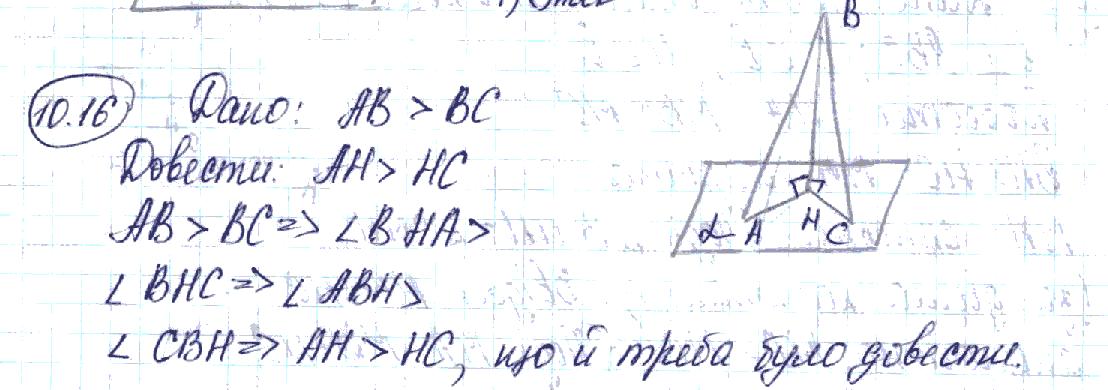 10.16 Дано: AB > BC
Довести: AH > HC
AB > BC => ∠BHA >
∠BHC => ∠ABH >
∠CBH => AH > HC, що й треба було довести.
B
α A H C